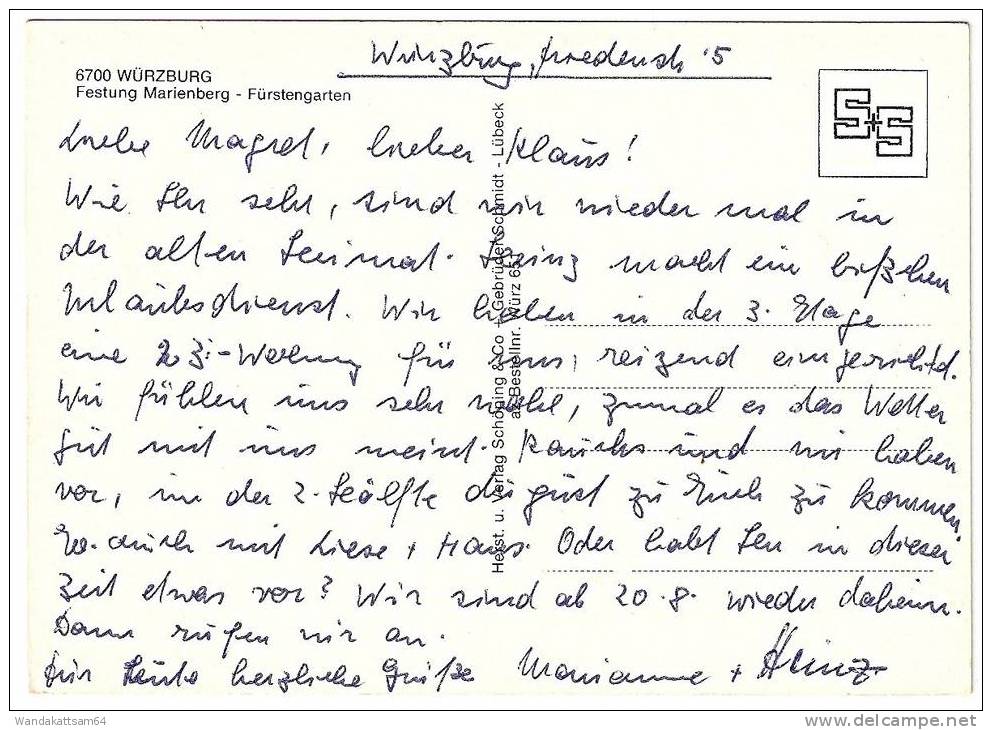 Würzburg, Friedenstr. 5
6700 WÜRZBURG
Festung Marienberg - Fürstengarten
S+S
Liebe Magret, lieber Klaus!
Wie Ihr seht, sind wir wieder mal in
der alten Heimat. Heinz macht ein bißchen
Urlaubsdienst. Wir haben in der 3. Etage
eine 2 Zi.-Wohnung für uns, reizend eingerichtet.
Wir fühlen uns sehr wohl, zumal es das Wetter
gut mit uns meint. und wir haben
vor, in der 2. Hälfte August zu Euch zu kommen.
Ev. auch mit Liese + Hans. Oder habt Ihr in dieser
Zeit etwas vor? Wir sind ab 20.8. wieder daheim.
Dann rufen wir an.
Für heute herzliche Grüße Marianne + Heinz
Herst. u. Verlag Schöning & Co + Gebrüder Schmidt - Lübeck
Bestellnr. Würz 651
Wandakattsam64
www.delcampe.net